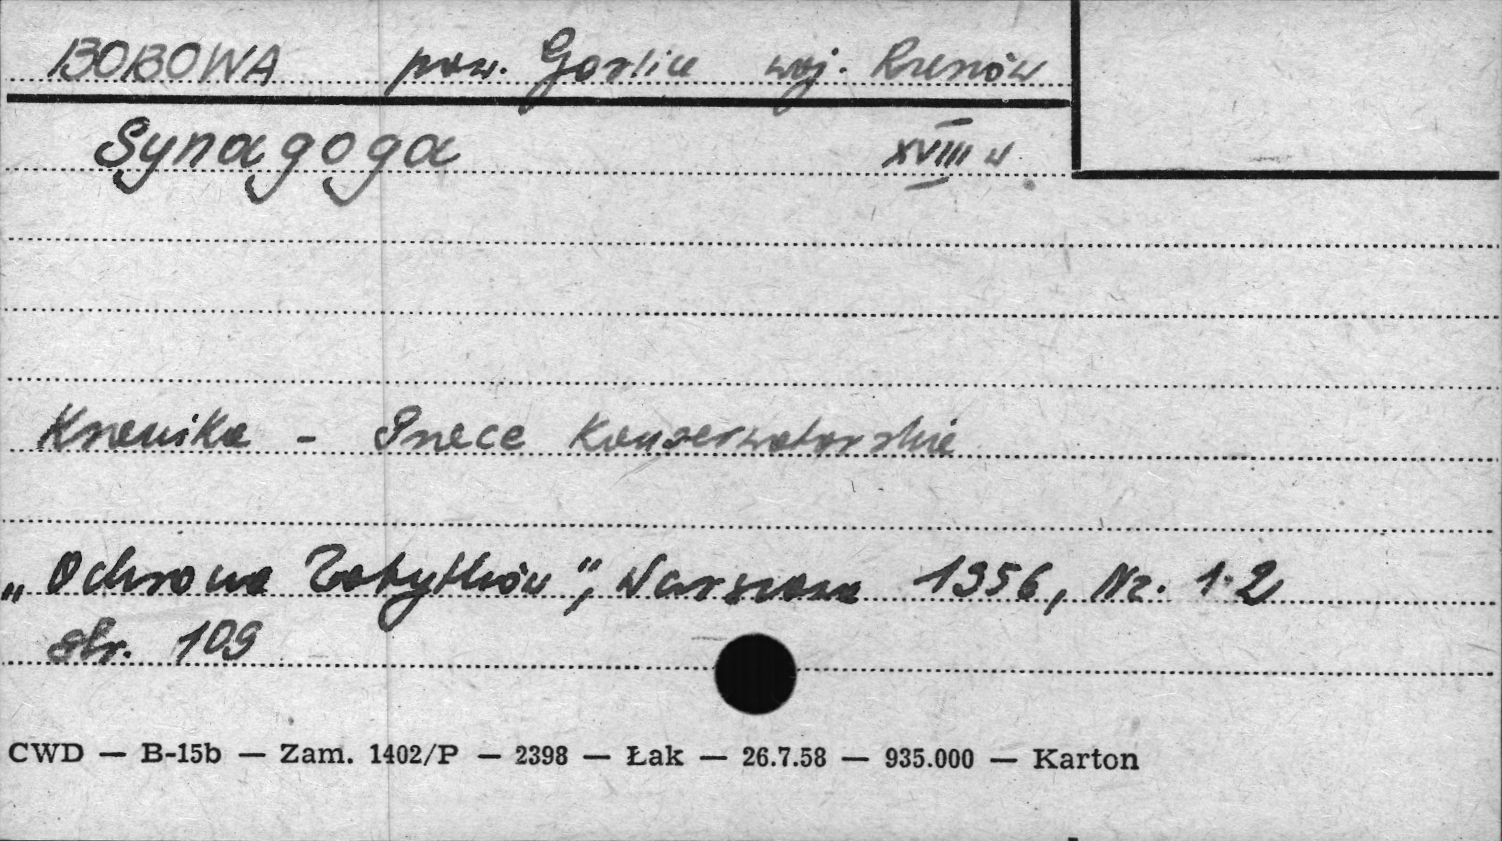 BOBOWA pow. Gorlice woj. Rzeszów
Synagoga XVIII w.
Kronika - Prace Konserwatorskie
„Ochrona Zabytków”, Warszawa 1956, Nr. 1-2
str. 109
CWD — B-15b — Zam. 1402/P — 2398 — Łak — 26.7.58 — 935.000 — Karton